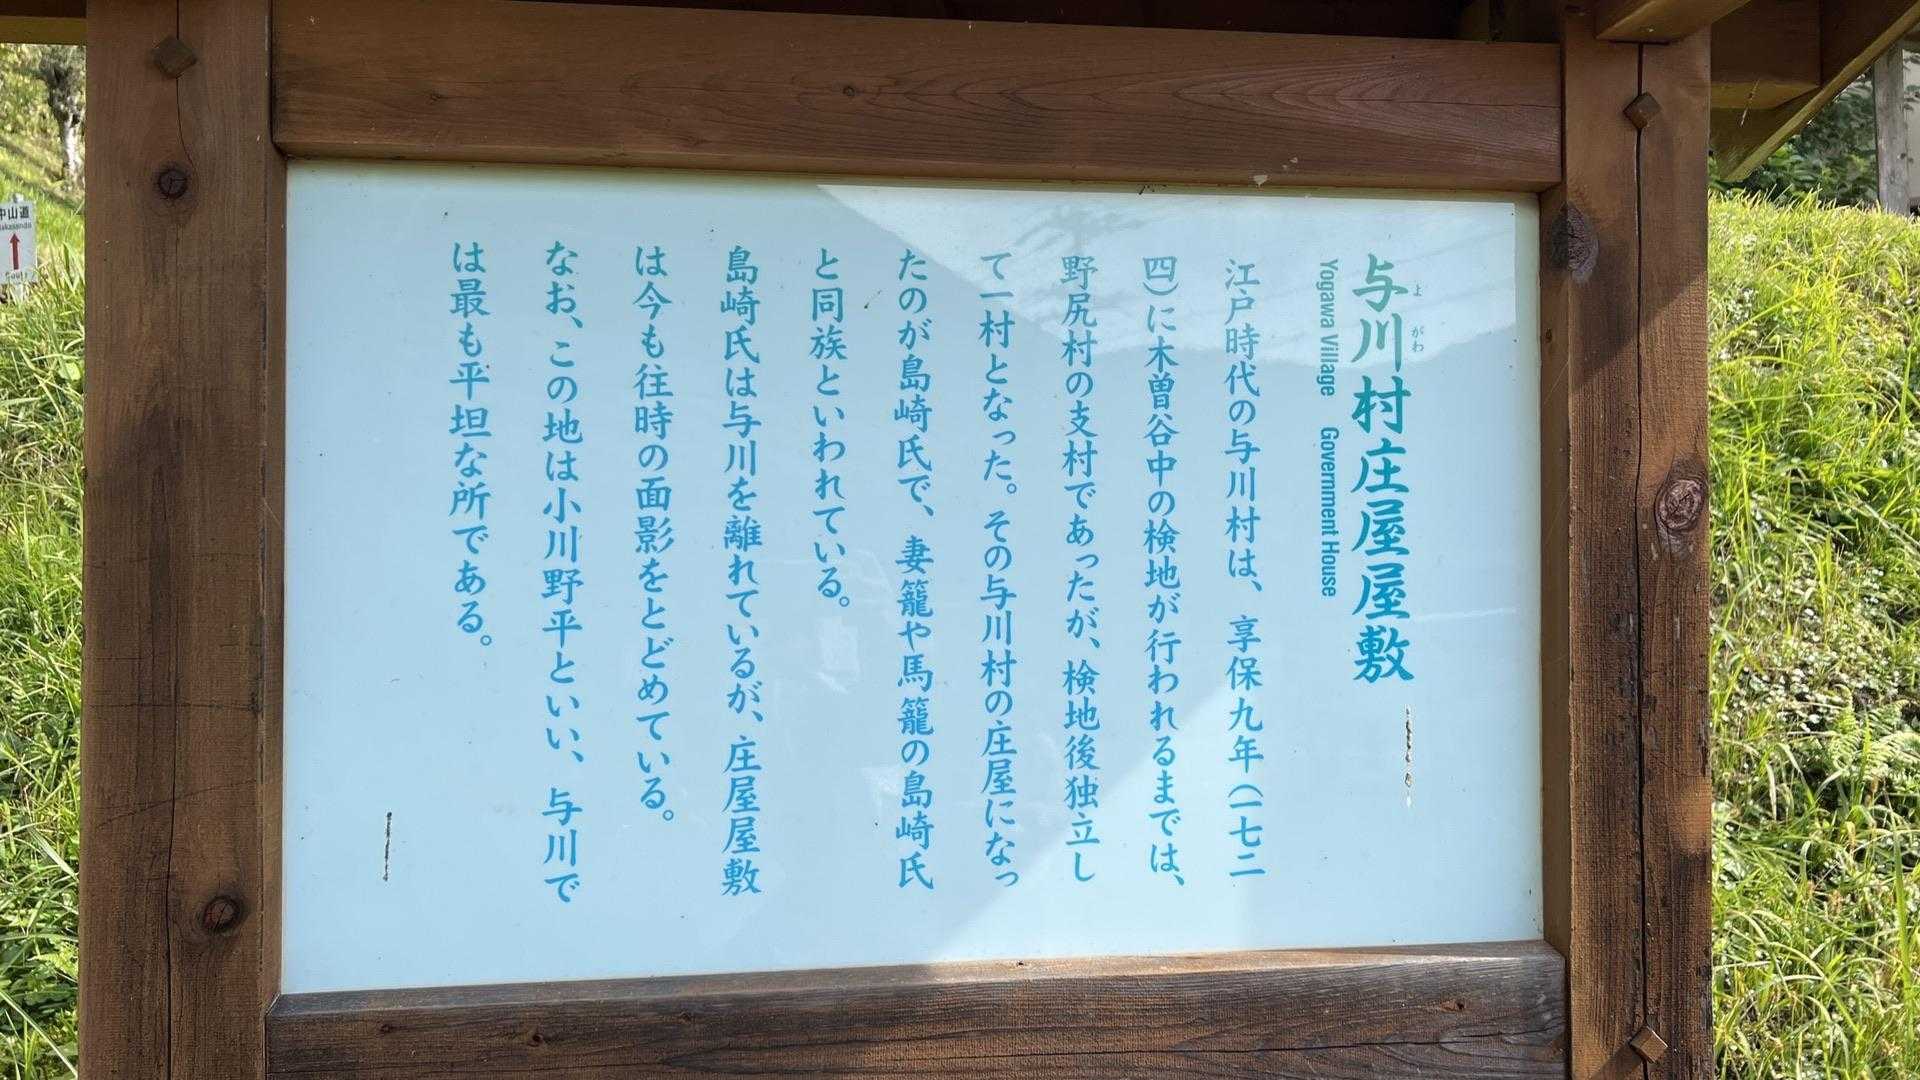 与川村庄屋屋敷
よがわ
Yogawa Village Government House
江戸時代の与川村は、享保九年(一七二
四)に木曽谷中の検地が行われるまでは、
野尻村の支村であったが、検地後独立し
て一村となった。その与川村の庄屋になっ
たのが島崎氏で、妻籠や馬籠の島崎氏
と同族といわれている。
島崎氏は与川を離れているが、庄屋屋敷
は今も往時の面影をとどめている。
なお、この地は小川野平といい、与川で
は最も平坦な所である。
中山道